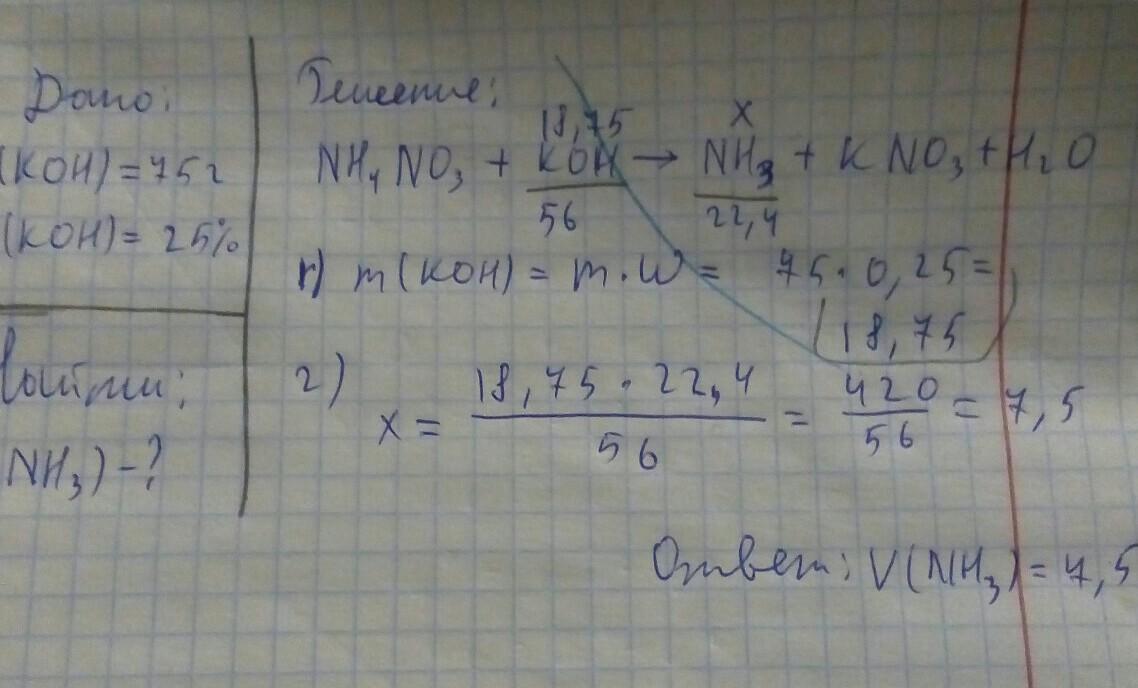 Дано:
(KOH) = 75 г
(KOH) = 25%
Найти:
NH₃) - ?
Решение:
18,75 x
NH₄NO₃ + KOH → NH₃ + KNO₃ + H₂O
56 22,4
1) m(KOH) = m · W = 75 · 0,25 =
18,75
2) x = 18,75 · 22,4 / 56 = 420 / 56 = 7,5
Ответ: V(NH₃) = 7,5